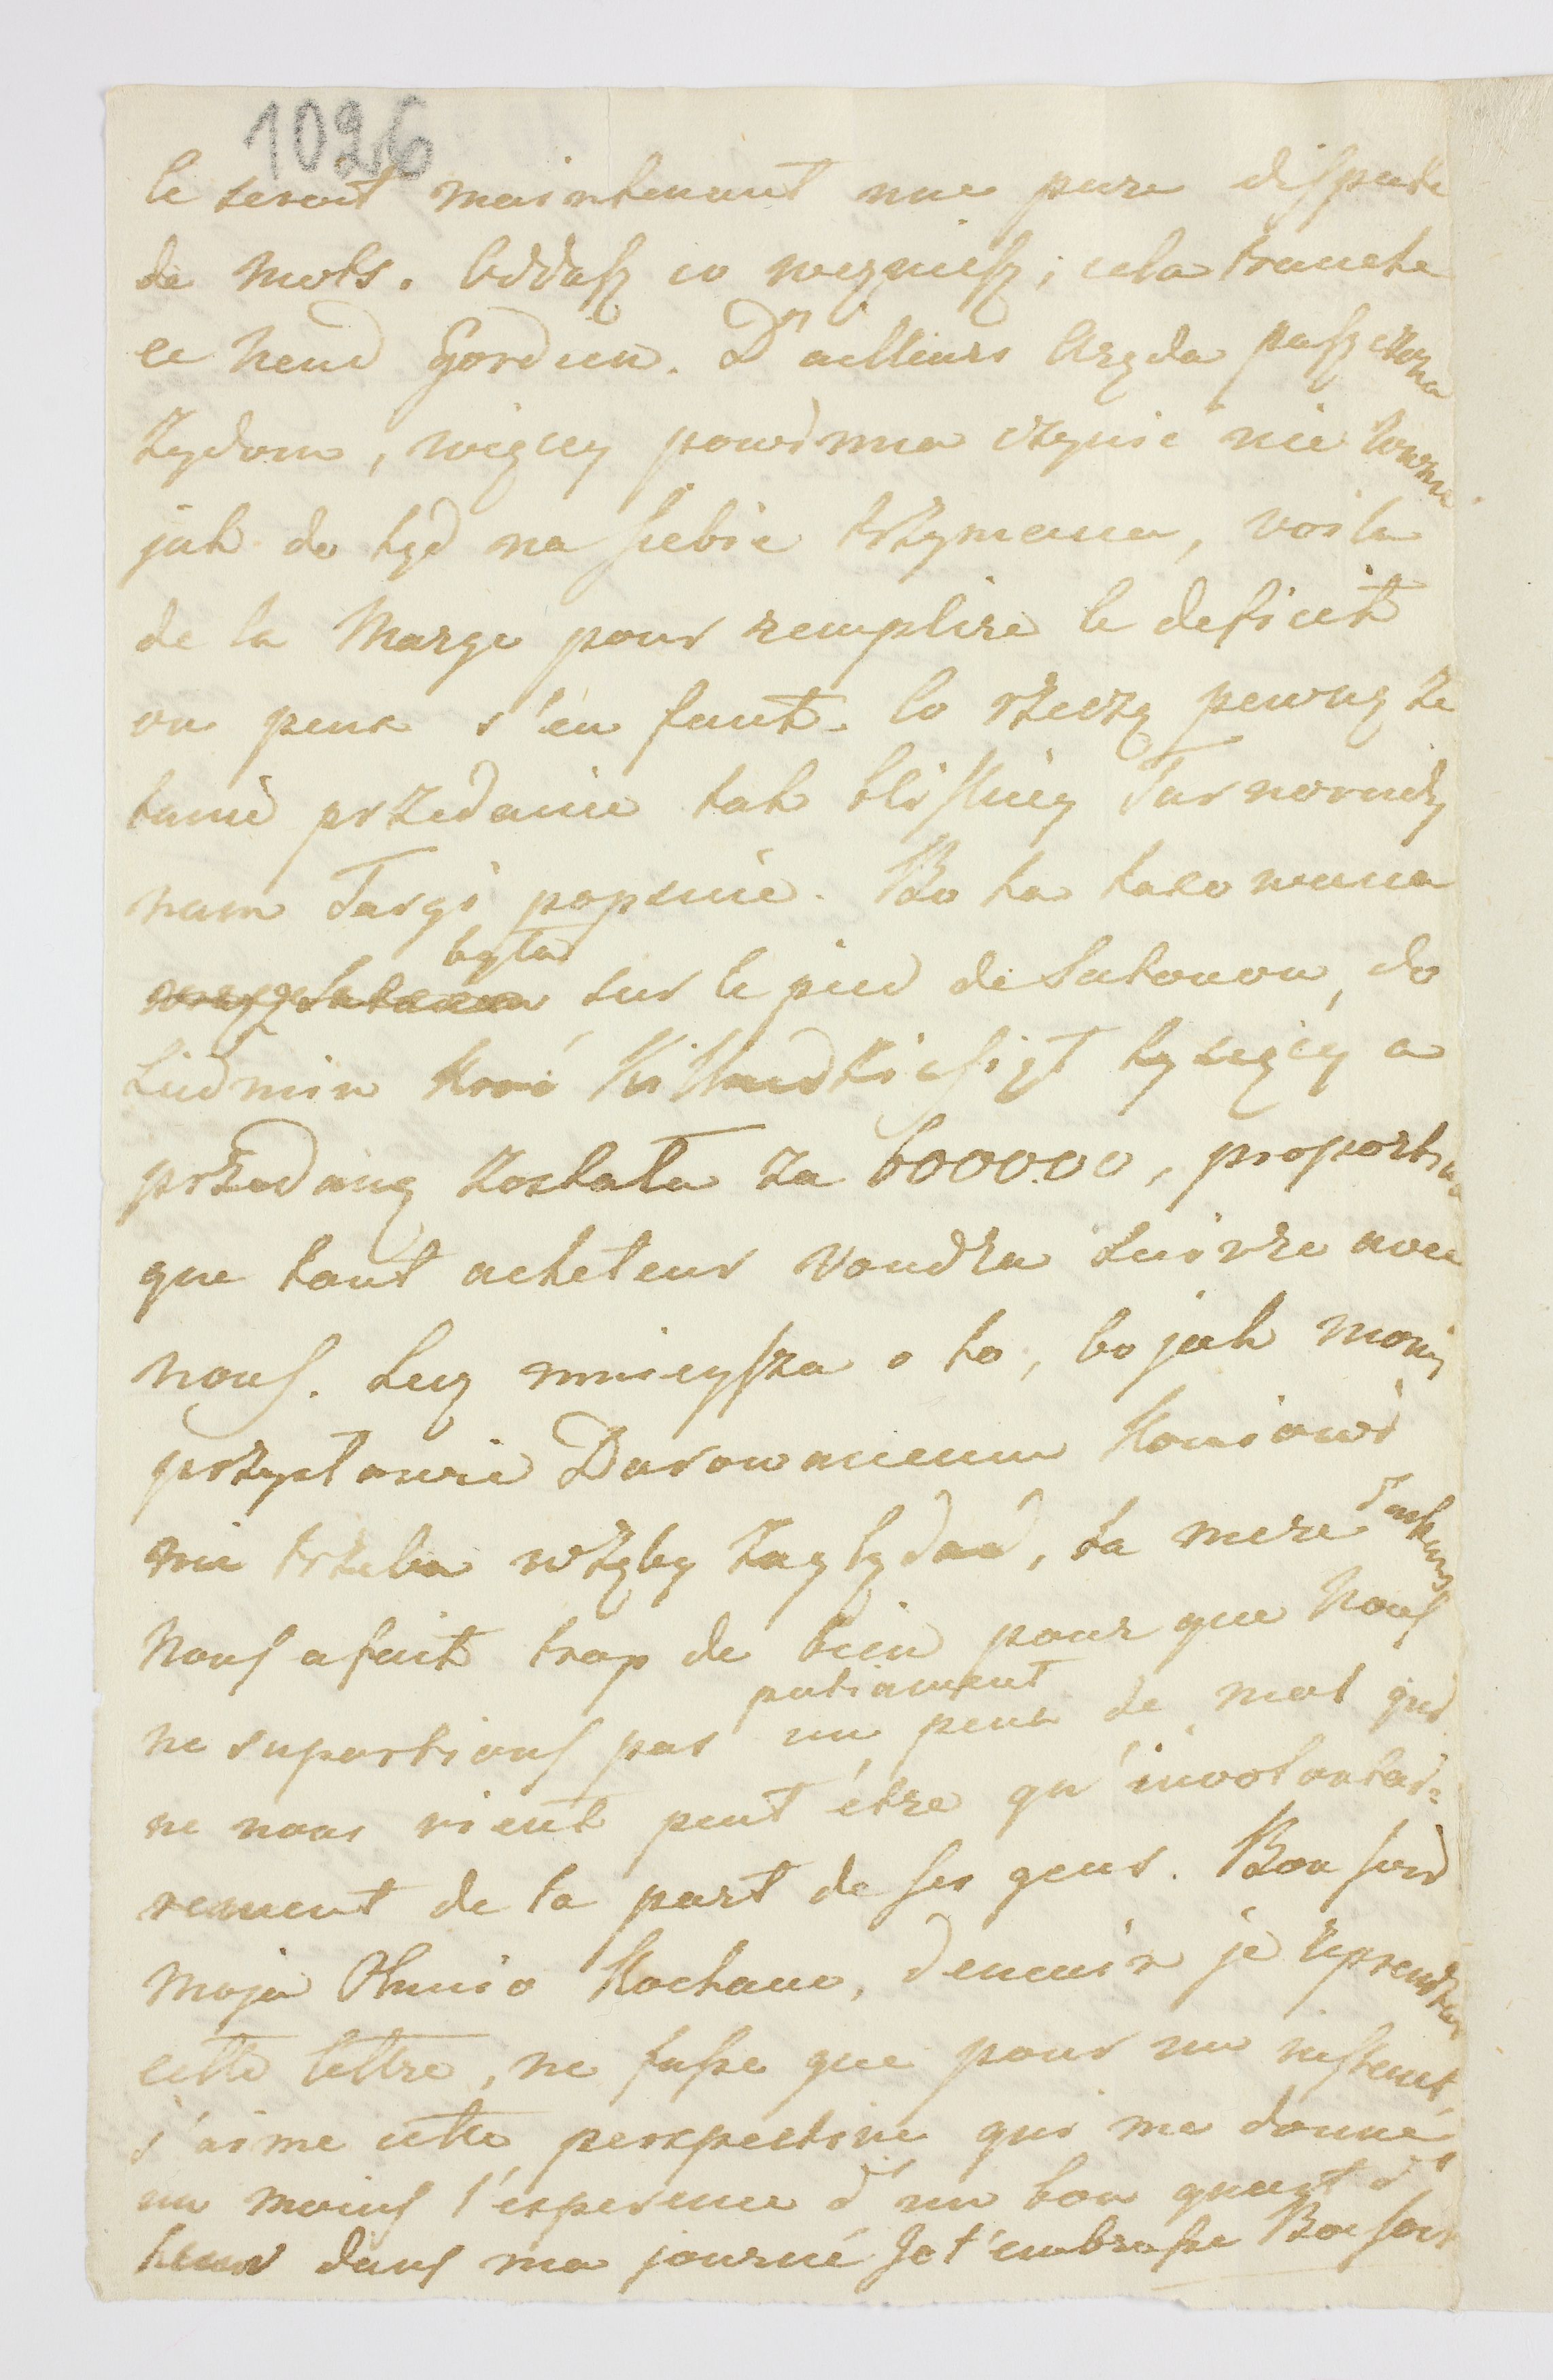 1026
Ce seroit maintenant une pure dispute
de mots. Oddasz co wezmiesz, cela tranche
ce neud Gordien. D'ailleurs Aręda puszczona
żydom, więcey powinna czynić nie
jak do tąd na siebie trzymana, voila
de la Marge pour remplire le deficit
ou peux s'en faut. Co rzeczą pewną że
tanie przedanie tak bliskiey Tarnorudy
nam Targi popsuie. Bo ta taxowana
była sur le pied de Satanow, do
Ludmin kroć kilkadziesiąt tysięcy a
przedaną została za 600000, proportion
que tout acheteur voudra suivre avec
nous. Lecz mnieysza o to, bo jak mowią
przysłowie Darowanemu Koniowi
nie trzeba w zęby zaglądać, ta mere
nous a fait trop de bien pour que nous
patiament
ne suportions pas un peux de mal qui
ne nous vient peut être qu'involontai=
rement de la part de ses gens. Bon soir
moja Kochana, demain je reprendrai
cette lettre, ne fusse que pour un instent,
j'aime cette perspective qui me donne,
au moins l'esperence d'un bon quart d'
heur dans ma journé Je t'embrasse Bon soir